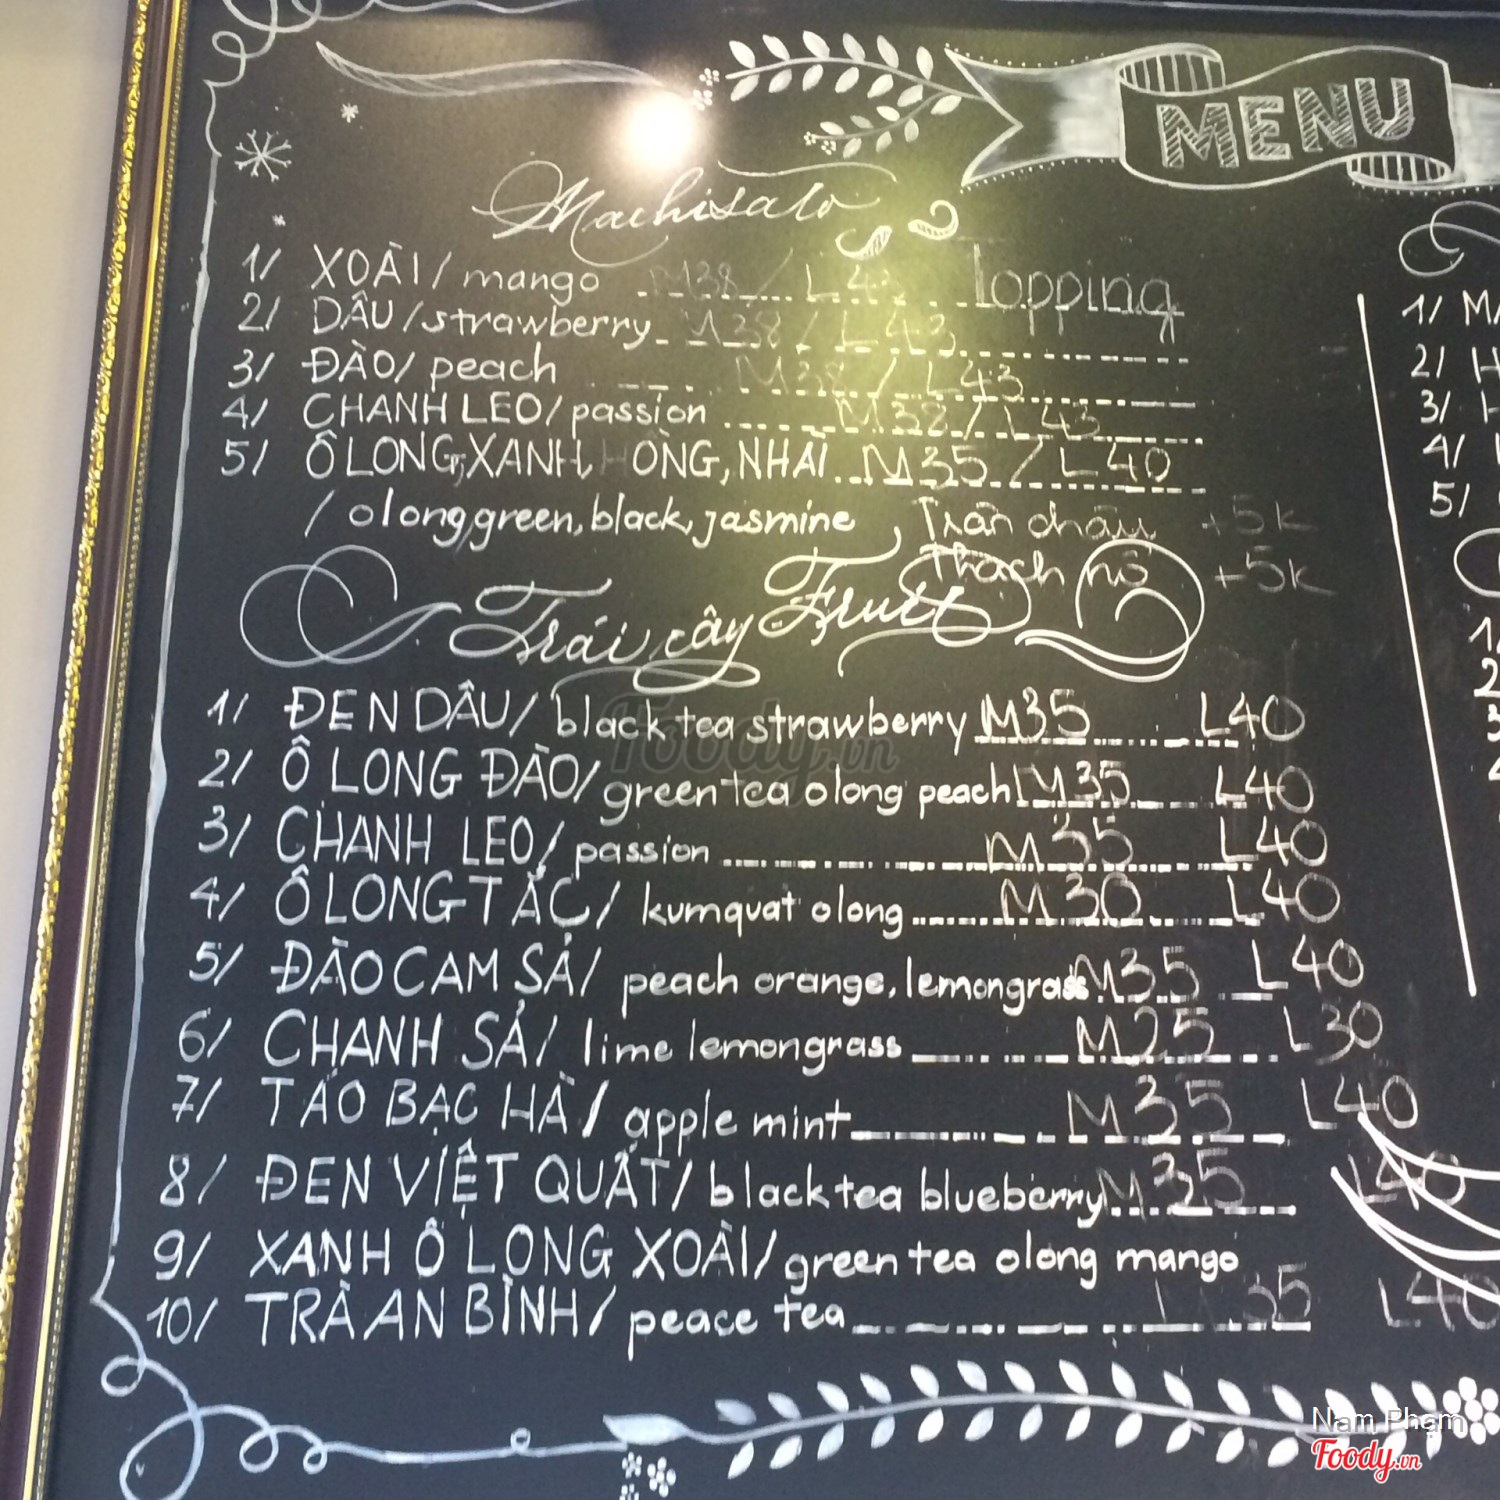 MENU
Machisato
1/ XOÀI / mango M38 / L43 Topping
2/ DÂU / strawberry M38 / L43
3/ ĐÀO / peach M38 / L43
4/ CHANH LEO / passion M38 / L43
5/ Ô LONG, XANH, HỒNG, NHÀI M35 / L40
/ olong, green, black, jasmine Trân châu +5K
Thạch nổ +5K
Trái cây Fruit
1/ ĐEN DÂU / black tea strawberry M35 L40
2/ Ô LONG ĐÀO / green tea olong peach M35 L40
3/ CHANH LEO / passion M35 L40
4/ Ô LONG TẮC / kumquat olong M30 L40
5/ ĐÀO CAM SẢ / peach orange, lemongrass M35 L40
6/ CHANH SẢ / lime lemongrass M25 L30
7/ TÁO BẠC HÀ / apple mint M35 L40
8/ ĐEN VIỆT QUẤT / black tea blueberry M35 L40
9/ XANH Ô LONG XOÀI / green tea olong mango
10/ TRÀ AN BÌNH / peace tea M35 L40
1/
2/
3/
4/
5/
Foody.vn
Nam Phạm
Foody.vn